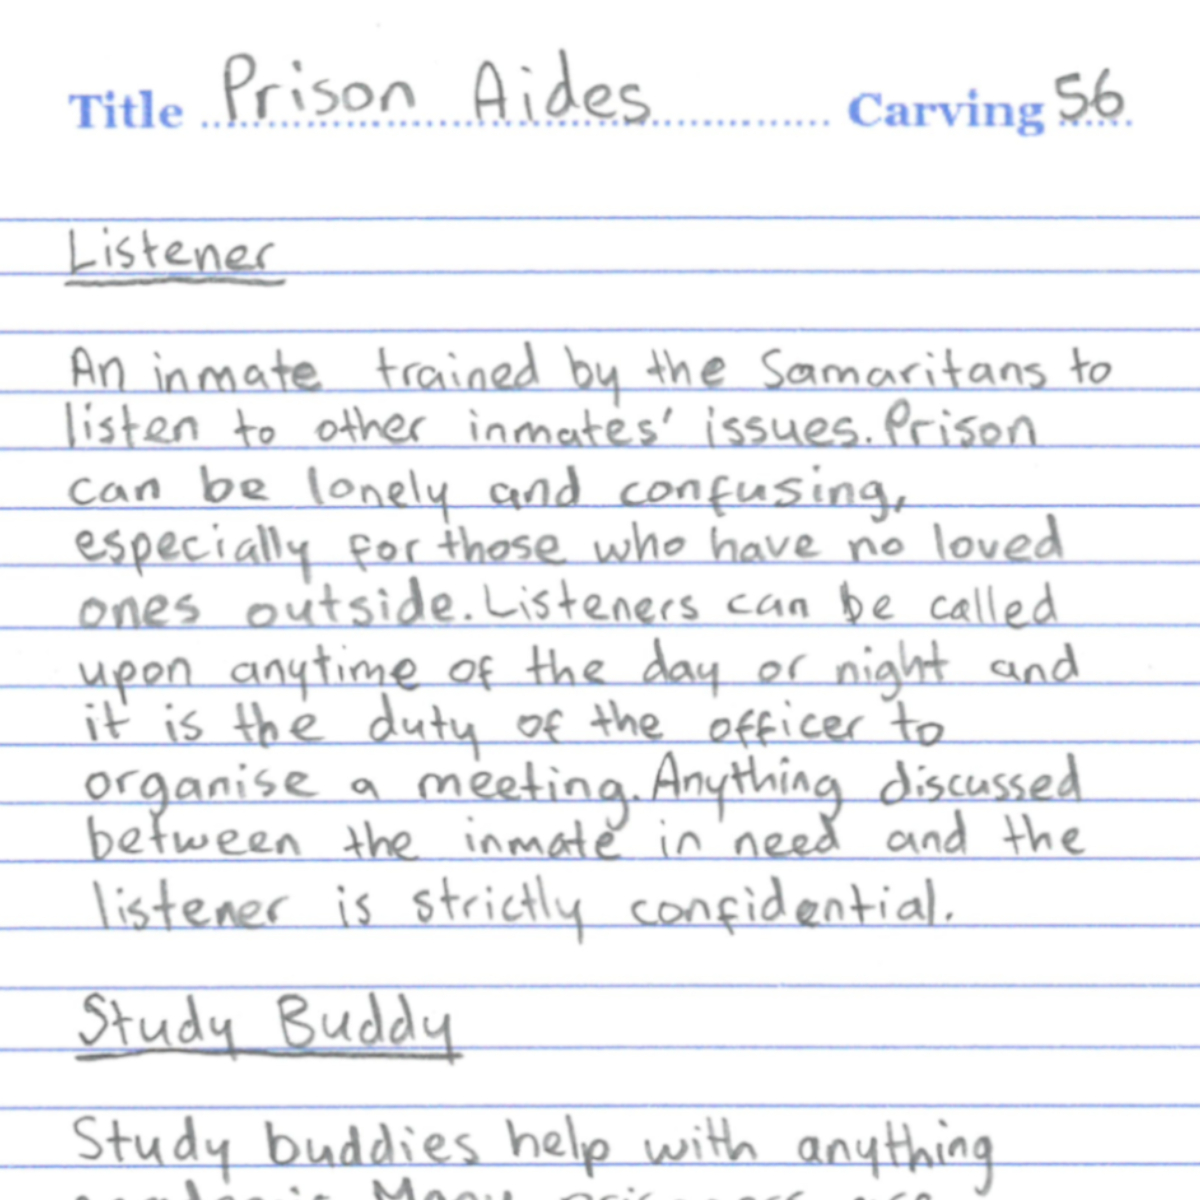 Title Prison Aides Carving 56
Listener
An inmate trained by the Samaritans to
listen to other inmates' issues. Prison
can be lonely and confusing,
especially for those who have no loved
ones outside. Listeners can be called
upon anytime of the day or night and
it is the duty of the officer to
organise a meeting. Anything discussed
between the inmate in need and the
listener is strictly confidential.
Study Buddy
Study buddies help with anything